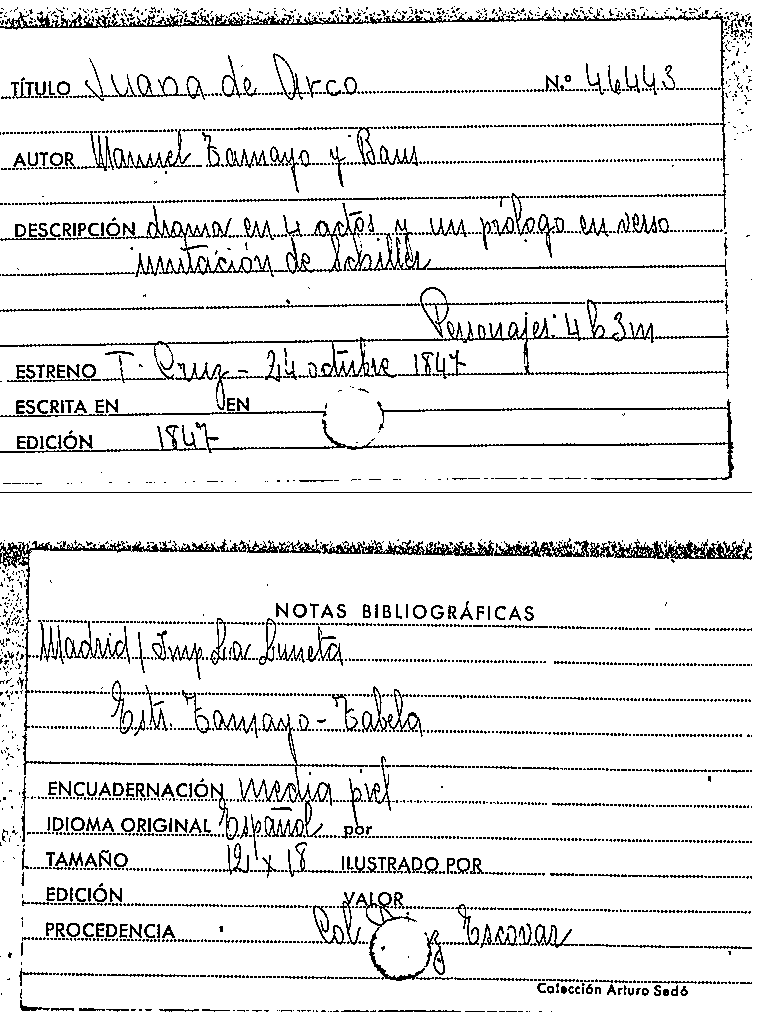 TÍTULO Juana de Arco N.º 46443
AUTOR Manuel Tamayo y Baus
DESCRIPCIÓN drama en 4 actos y un prólogo en verso
imitación de Schiller
Personajes: 4 h 3 m
ESTRENO T. Cruz - 24 octubre 1847
ESCRITA EN EN
EDICIÓN 1847
NOTAS BIBLIOGRÁFICAS
Madrid / Imp La Luneta
Estr. Tamayo - Tabela
ENCUADERNACIÓN media piel
IDIOMA ORIGINAL Español por
TAMAÑO 12 x 18 ILUSTRADO POR
EDICIÓN VALOR
PROCEDENCIA Col Escovar
Colección Arturo Sedó